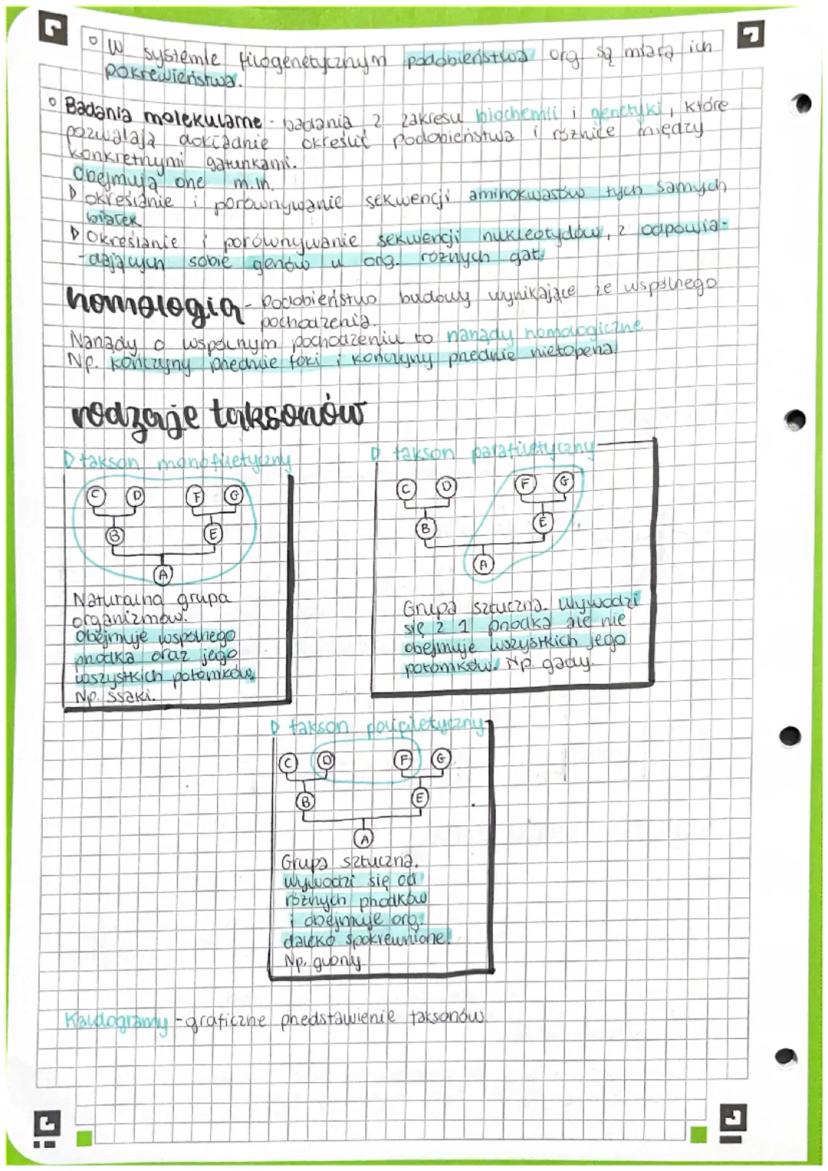 W systemie filogenetycznym podobieństwa org są miarą ich
pokrewieństwa.
Badania molekularne - badania z zakresu biochemii i genetyki, które
pozwalają dokładnie określić podobieństwa i różnice między
konkretnymi gatunkami.
Obejmują one m.in.
określanie i porównywanie sekwencji aminokwasów tych samych
białek
Określanie i porównywanie sekwencji nukleotydów, z odpowia-
-dających sobie genów u org. różnych gat.
homologia - podobieństwo budowy wynikające ze wspólnego
pochodzenia.
Narządy o wspólnym pochodzeniu to narządy homologiczne
Np. kończyny przednie foki i kończyny przednie nietoperza
rodzaje taksonów
takson monofiletyczny
C D F G
B E
A
Naturalna grupa
organizmów.
Obejmuje wspólnego
przodka oraz jego
wszystkich potomków,
Np. ssaki.
takson parafiletyczny
C D F G
B E
A
Grupa sztuczna. Wywodzi
się z 1 przodka ale nie
obejmuje wszystkich jego
potomków. Np. gady.
takson polifiletyczny
C D F G
B E
A
Grupa sztuczna.
Wywodzi się od
różnych przodków
i obejmuje org.
daleko spokrewnione!
Np. glony.
Kaldogramy - graficzne przedstawienie taksonów